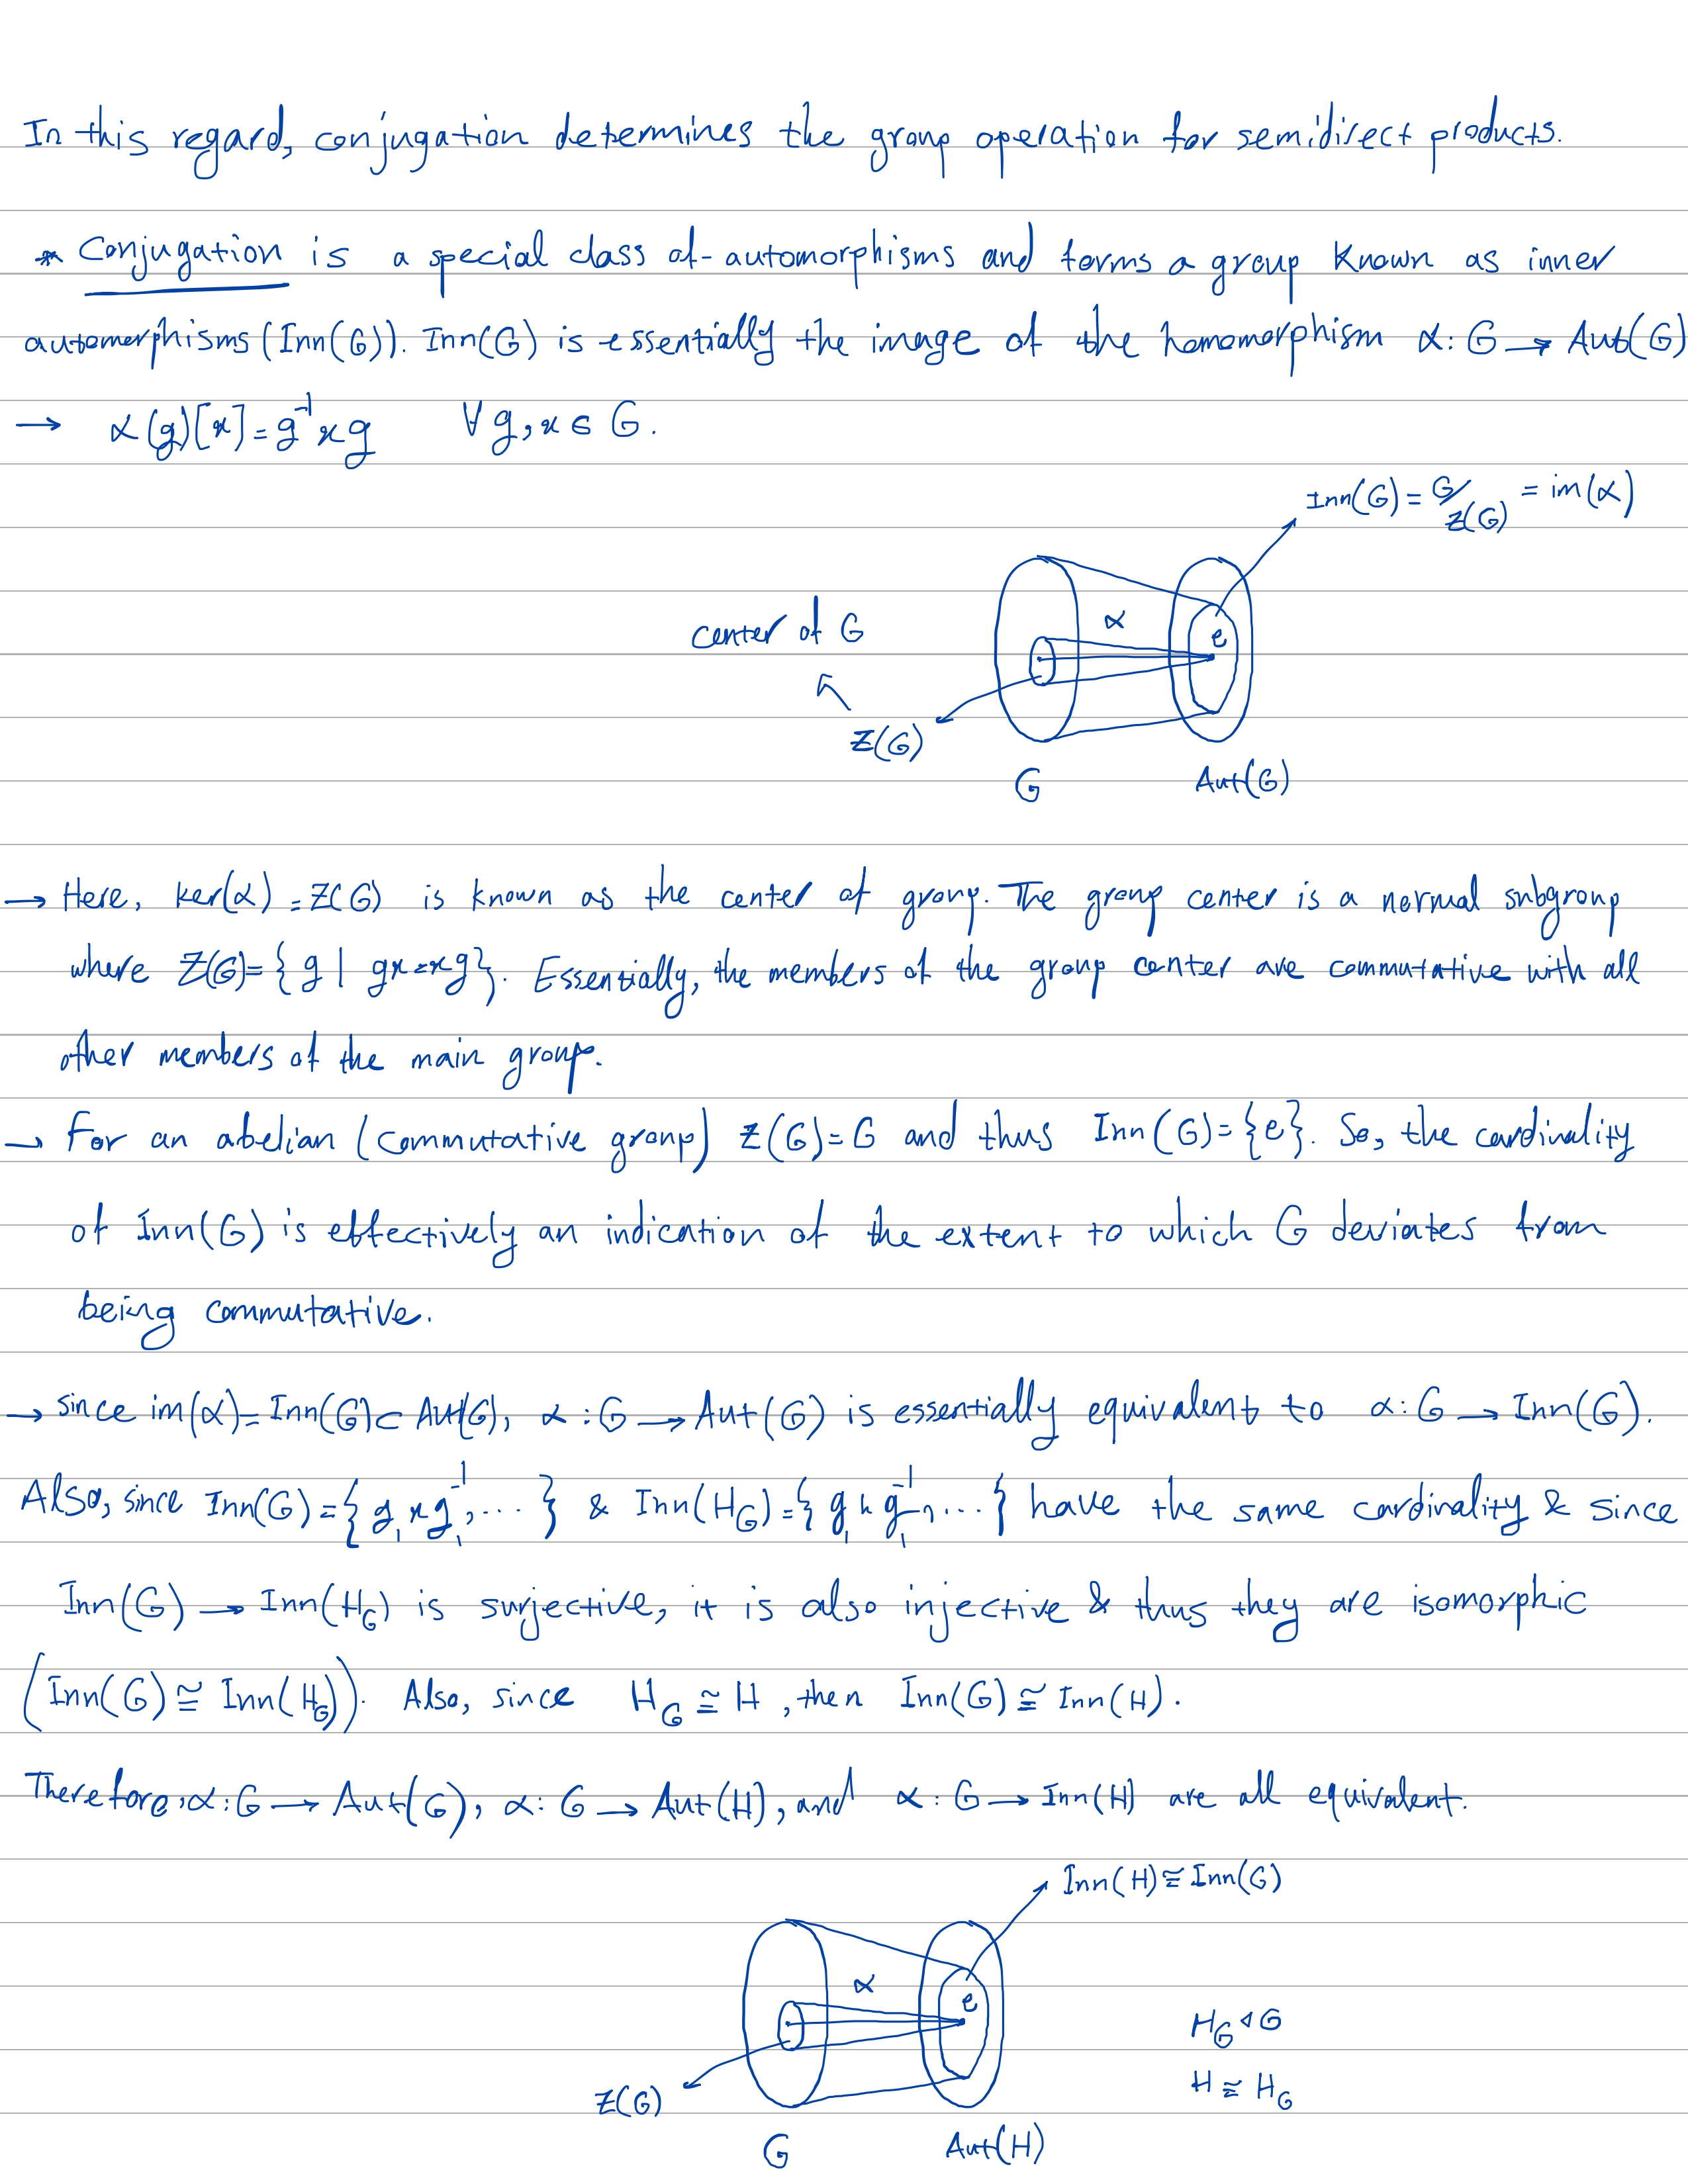 In this regard, conjugation determines the group operation for semidirect products.
* Conjugation is a special class of automorphisms and forms a group known as inner
automorphisms (Inn(G)). Inn(G) is essentially the image of the homomorphism α: G → Aut(G)
→ α(g)[x] = g⁻¹xg ∀ g, x ∈ G.
Inn(G) = G/Z(G) = im(α)
α
e
center of G
Z(G)
G Aut(G)
→ Here, ker(α) = Z(G) is known as the center of group. The group center is a normal subgroup
where Z(G) = { g | gx = xg }. Essentially, the members of the group center are commutative with all
other members of the main group.
→ For an abelian (commutative group) Z(G) = G and thus Inn(G) = {e}. So, the cardinality
of Inn(G) is effectively an indication of the extent to which G deviates from
being commutative.
→ since im(α) = Inn(G) ⊂ Aut(G), α : G → Aut(G) is essentially equivalent to α: G → Inn(G).
Also, since Inn(G) = { g₁xg₁⁻¹, ... } & Inn(H_G) = { g₁hg₁⁻¹, ... } have the same cardinality & since
Inn(G) → Inn(H_G) is surjective, it is also injective & thus they are isomorphic
(Inn(G) ≅ Inn(H_G)). Also, since H_G ≅ H, then Inn(G) ≅ Inn(H).
Therefore, α: G → Aut(G), α: G → Aut(H), and α: G → Inn(H) are all equivalent.
Inn(H) ≅ Inn(G)
α
e
H_G ◁ G
H ≅ H_G
Z(G)
G Aut(H)